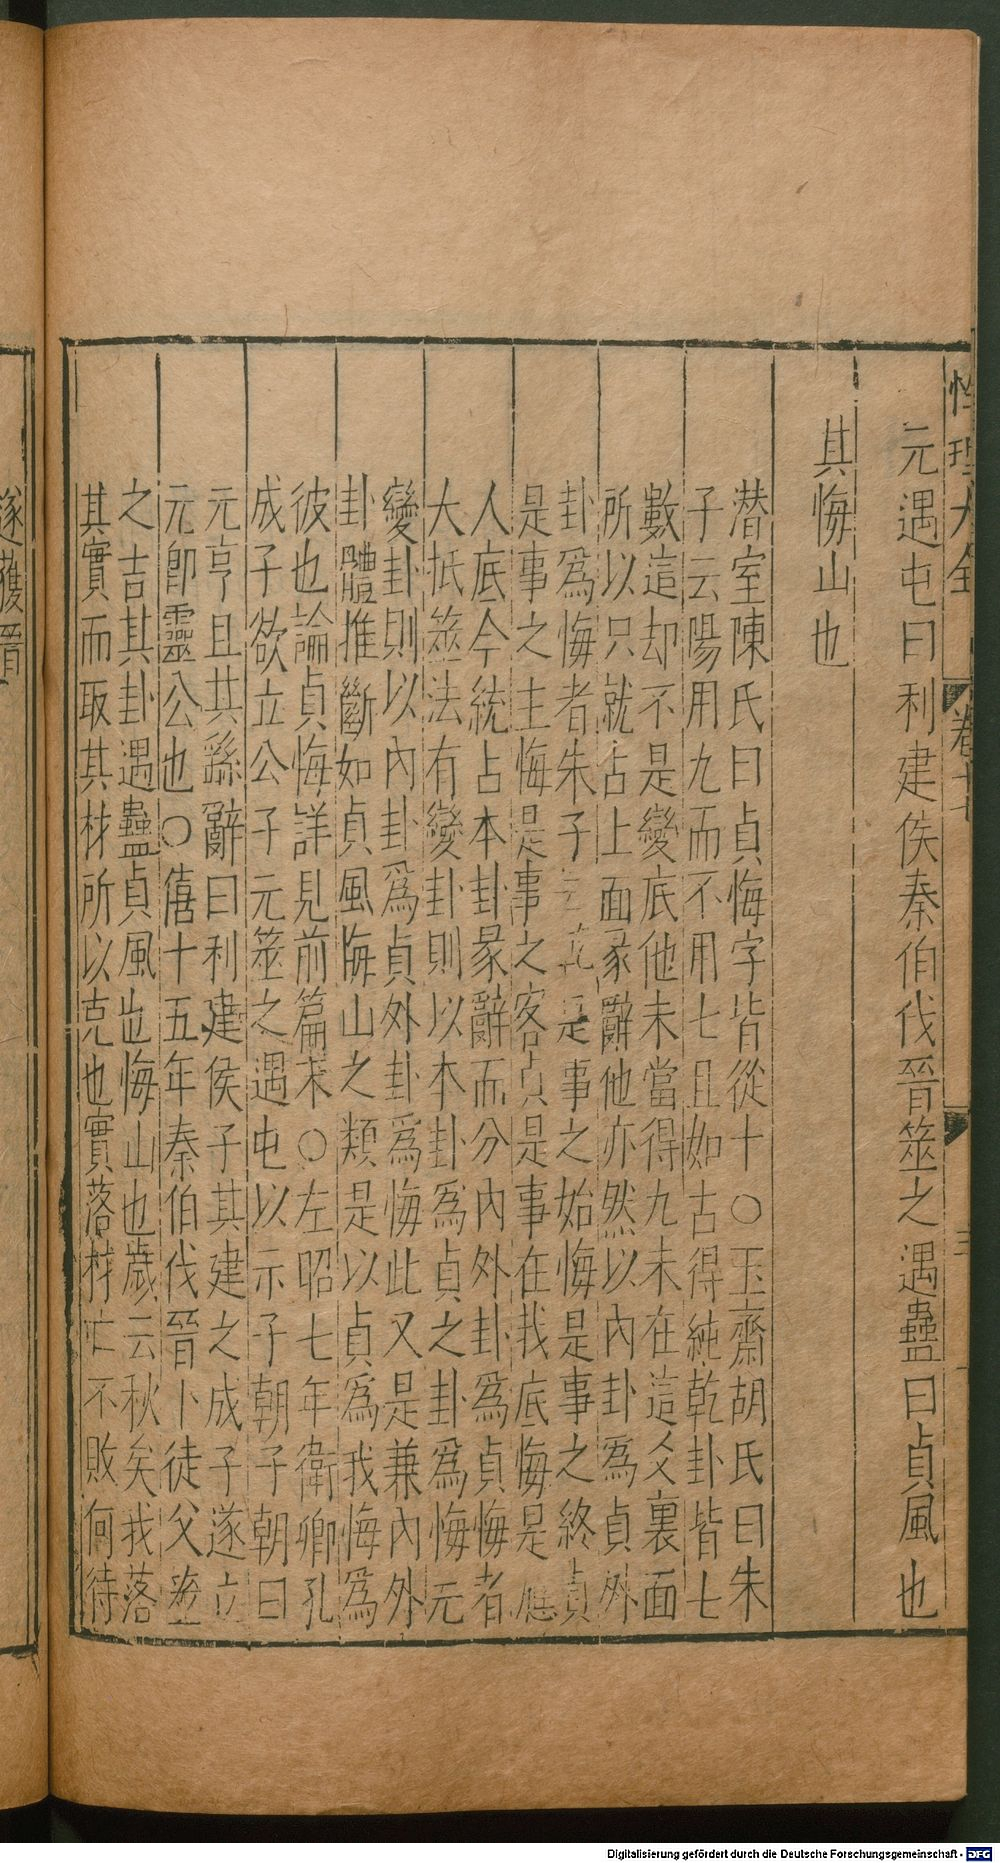 性理大全 卷十七 三
元遇屯曰利建侯秦伯伐晉筮之遇蠱曰貞風也
其悔山也
潛室陳氏曰貞悔字皆從十○玉齋胡氏曰朱
子云陽用九而不用七且如古得純乾卦皆七
數這却不是變底他未當得九未在這爻裏面
所以只就占上面彖辭他亦然以內卦爲貞外
卦爲悔者朱子是事之始悔是事之終貞
是事之主悔是事之客貞是事在我底悔是應
人底今統占本卦彖辭而分內外卦爲貞悔者
大抵筮法有變卦則以本卦爲貞之卦爲悔元
變卦則以內卦爲貞外卦爲悔此又是兼內外
卦體推斷如貞風悔山之類是以貞爲我悔爲
彼也論貞悔詳見前篇末○左昭七年衛卿孔
成子欲立公子元筮之遇屯以示子朝子朝曰
元亨且其繇辭曰利建侯子其建之成子遂立
元卽靈公也○僖十五年秦伯伐晉卜徒父筮
之吉其卦遇蠱貞風也悔山也歲云秋矣我落
其實而取其材所以克也實落材亡不敗何待
遂獲晉
Digitalisierung gefördert durch die Deutsche Forschungsgemeinschaft - DFG